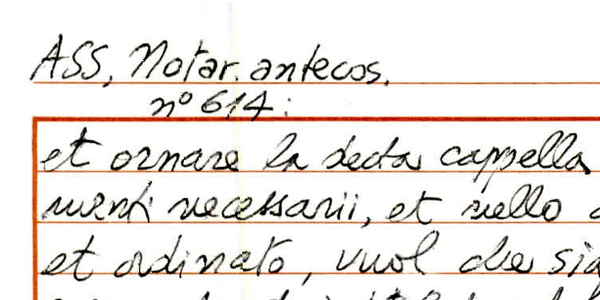 ASS, Notar. antecos.
nº 614:
et ornare la decta cappella
menti necessarii, et nello
et ordinato, vuol che sia